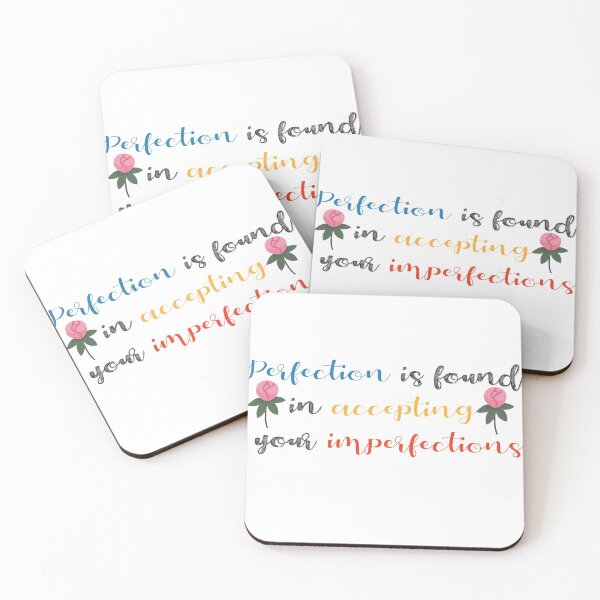 Perfection is found
in accepting
Perfection is found
in accepting
your imperfections
Perfection is found
in accepting
your imperfections
Perfection is found
in accepting
your imperfections